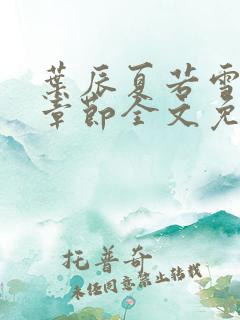 葉辰夏若雪
章節全文免
托普奇
未经同意禁止转载